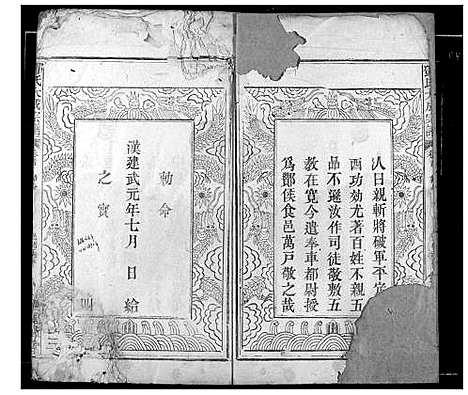 人日親斬將破軍平定
西功効尤著百姓不親五
品不遜汝作司徒敬敷五
教在寬今遣奉車都尉授
爲酇侯食邑萬户敬之哉
勅命
漢建武元年七月 日給
之寶